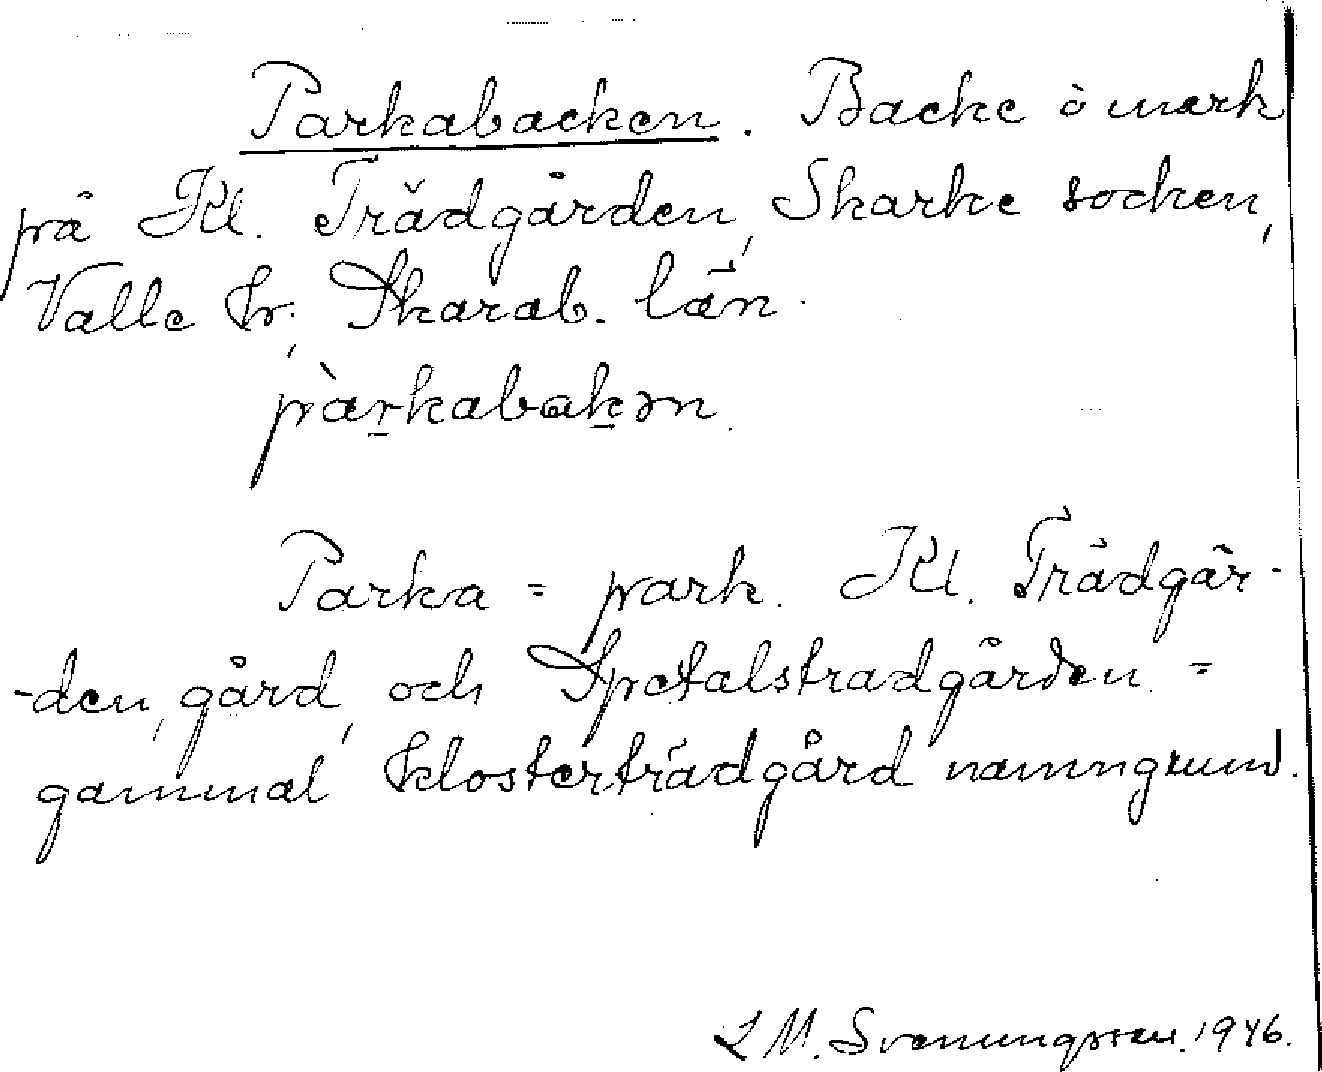 Parkabacken. Backe ö mark
på Kl. Trädgården, Skarke socken,
Valle hr, Skarab. län.
pàrkabakən.
Parka = park. Kl. Trädgår-
-den, gård, och Spetalsträdgården =
gammal klosterträdgård namngrund.
L M. Svenungsson. 1946.